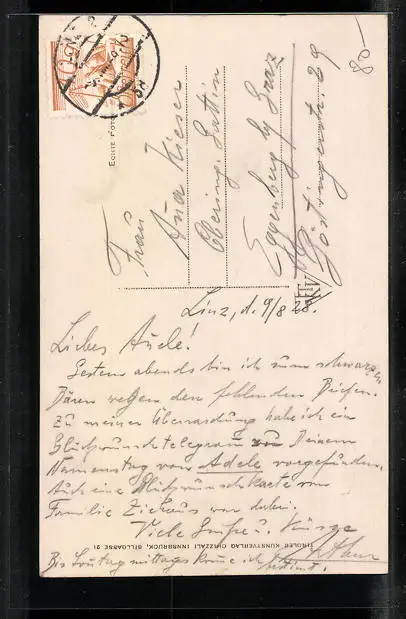 80-
ECHTE FOTO
Frau
Ana Kieser
Obering. Gattin
Eggenberg by Graz
Göstingerstr. 29
Linz, d. 9/8 28.
Liebes Anele!
Gestern abends bin ich zum schwarzen
Bären wegen den fehlenden Briefen.
Zu meiner Überraschung habe ich ein
Glückwunschtelegram zu Deinem
Namenstag von Adele vorgefunden.
Auch eine Glückwunschkarte von
Familie war dabei.
Viele Grüße u. Küsse
Arthur
Bis Sonntag mittags komme ich bestimmt.
TIROLER KUNSTVERLAG CHIZZALI INNSBRUCK, SILLGASSE 21